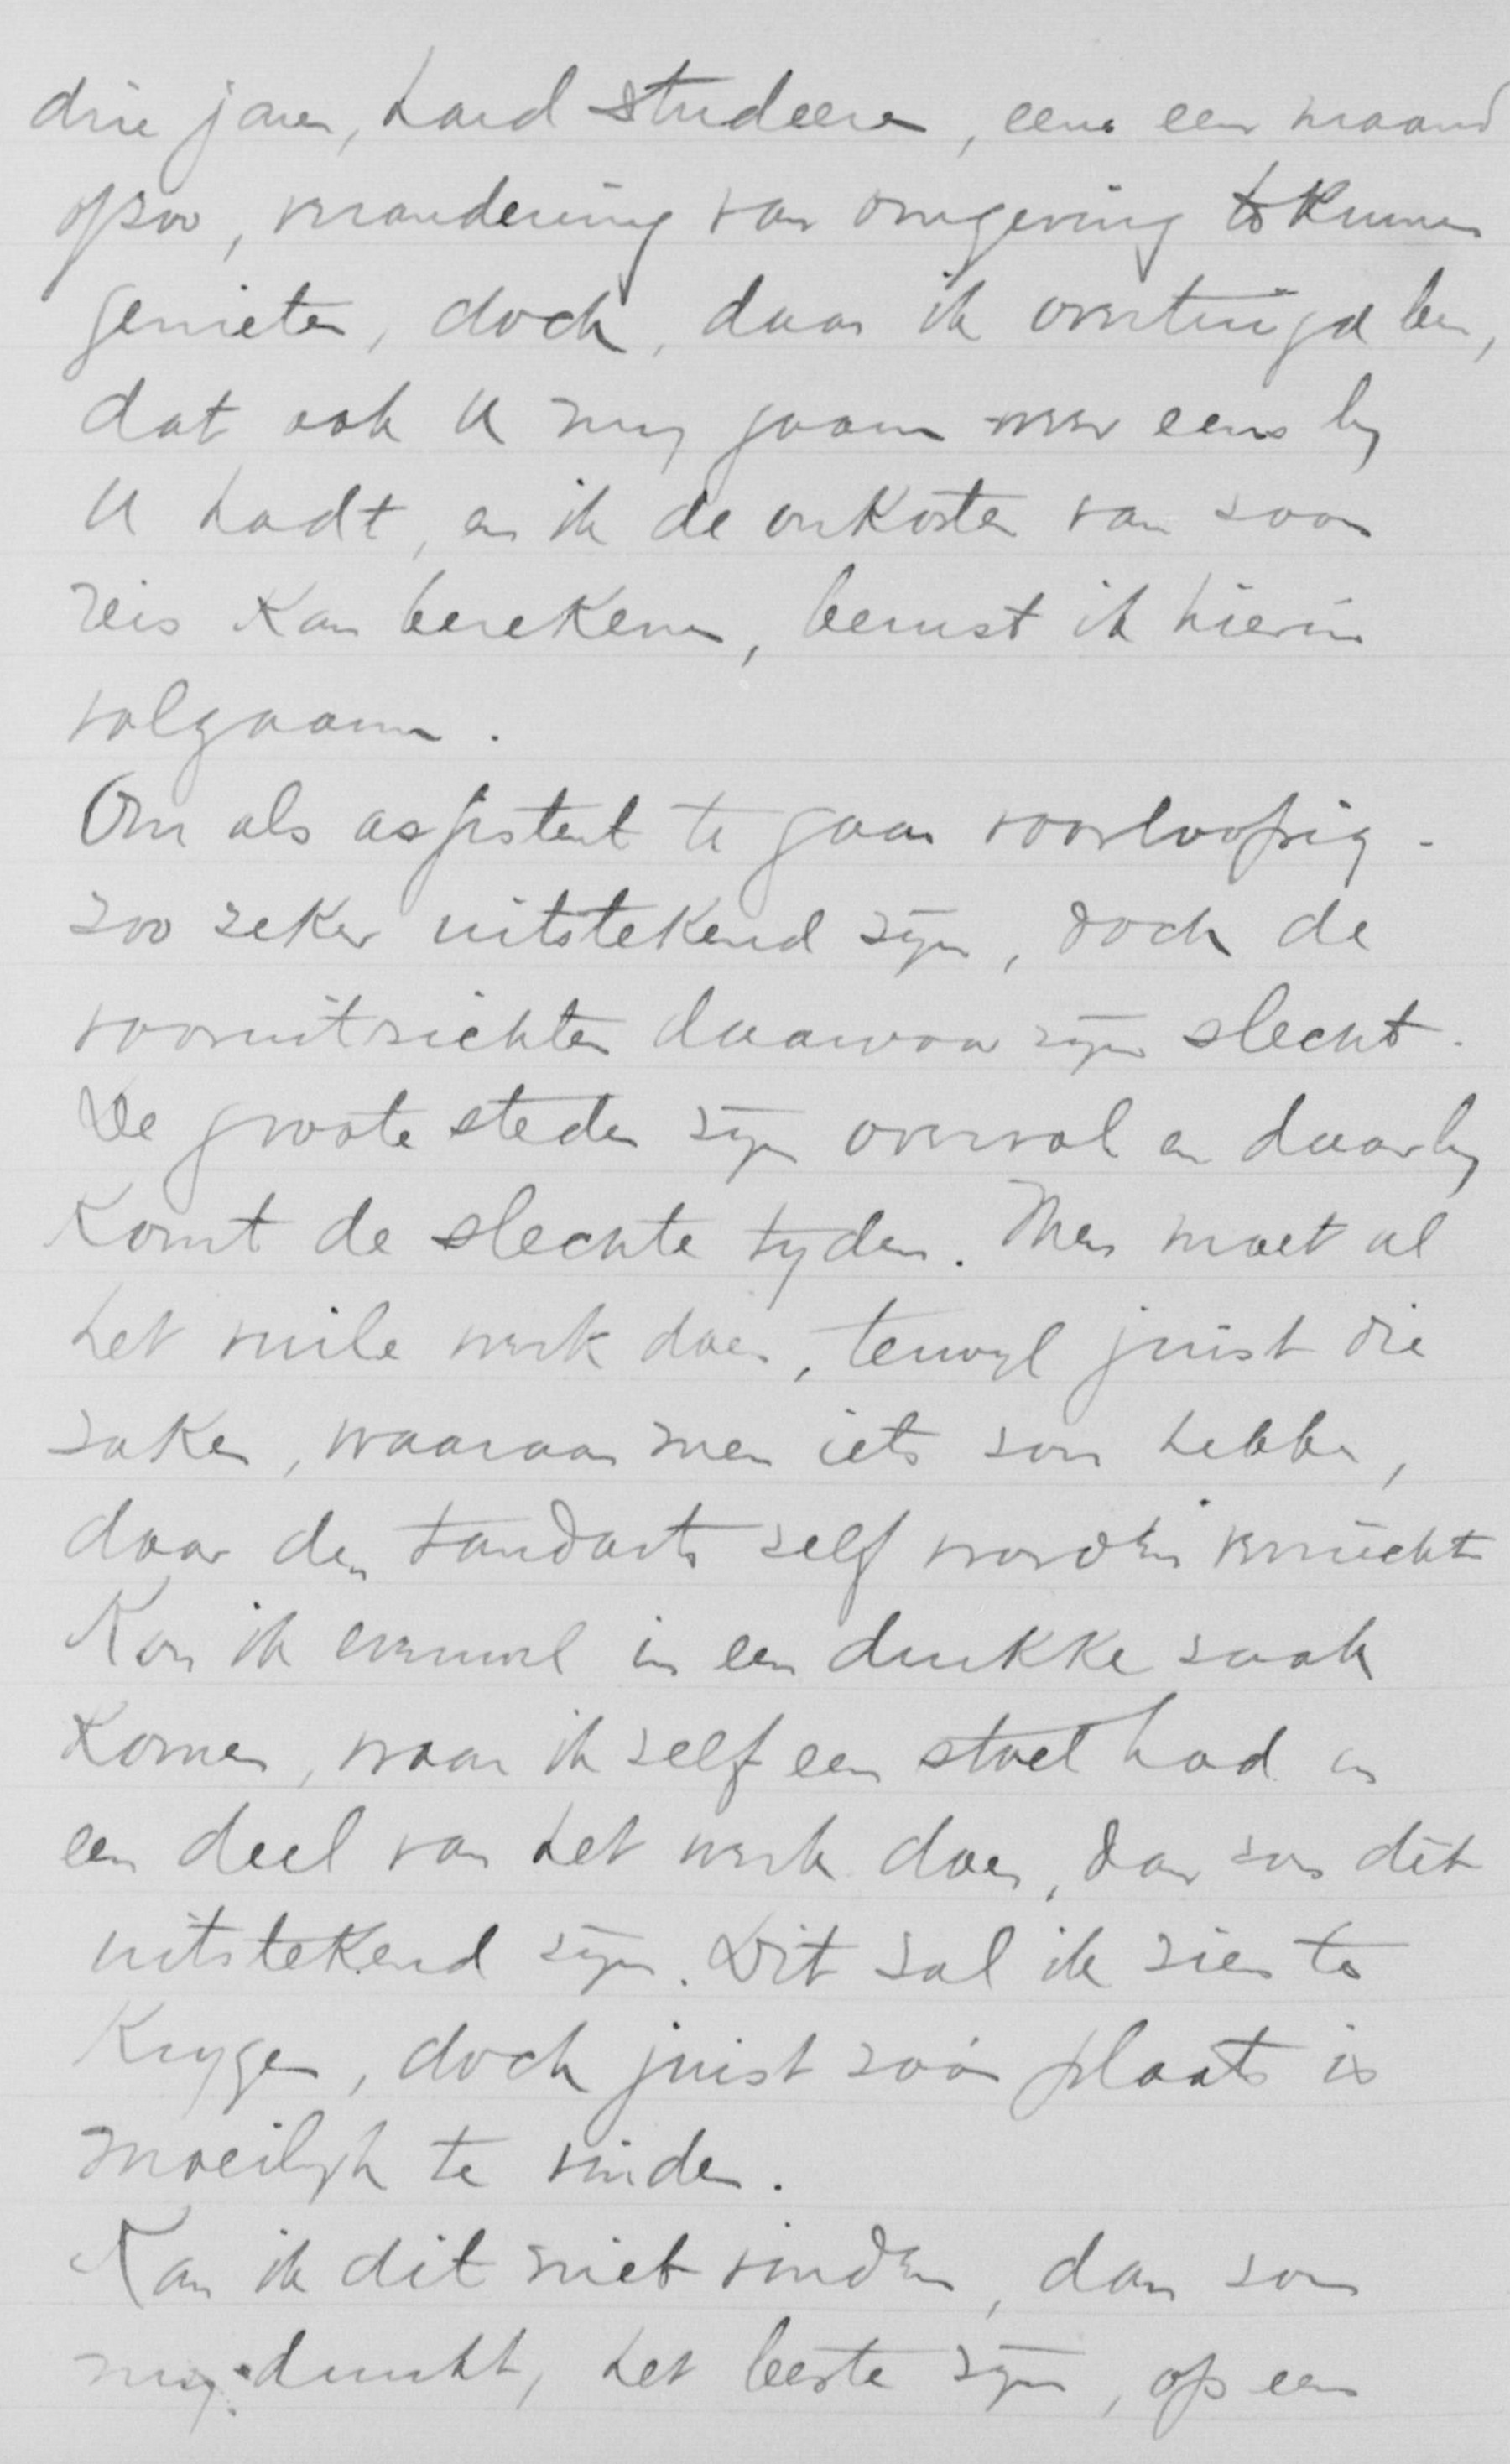 drie jaren, hard studeeren, eens een maand
of zoo, verandering van omgeving te kunnen
genieten, doch, daar ik overtuigd ben,
dat ook U mij gaarne weer eens bij
U hadt, en ik de onkosten van zoo'n
reis kan berekenen, berust ik hierin
volgaarne.
Om als assistent te gaan voorloopig -
zoo zeker uitstekend zijn, doch de
vooruitzichten daarvoor zijn slecht.
De groote steden zijn overvol en daarbij
komt de slechte tijden. Men moet al
het vuile werk doen, terwijl juist die
zaken, waaraan men iets zou hebben,
door den tandarts zelf worden verricht
Kon ik evenwel in een drukke zaak
komen, waar ik zelf een stoel had en
een deel van het werk doen, dan zou dit
uitstekend zijn. Dit zal ik zien te
krijgen, doch juist zoo'n plaats is
moeilijk te vinden.
Kan ik dit niet vinden, dan zou
mij dunkt, het beste zijn, op een